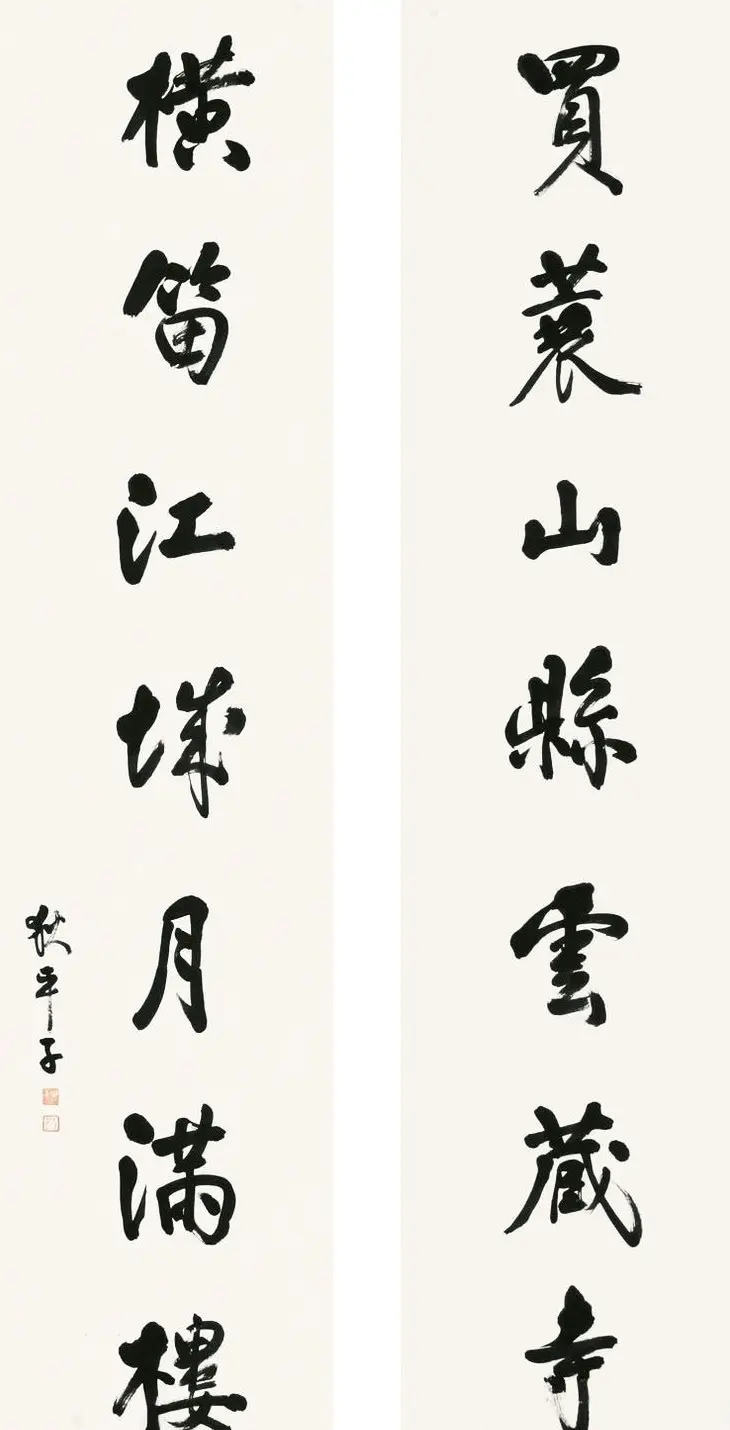 買蓑山縣雲藏寺
橫笛江城月滿樓
狄平子